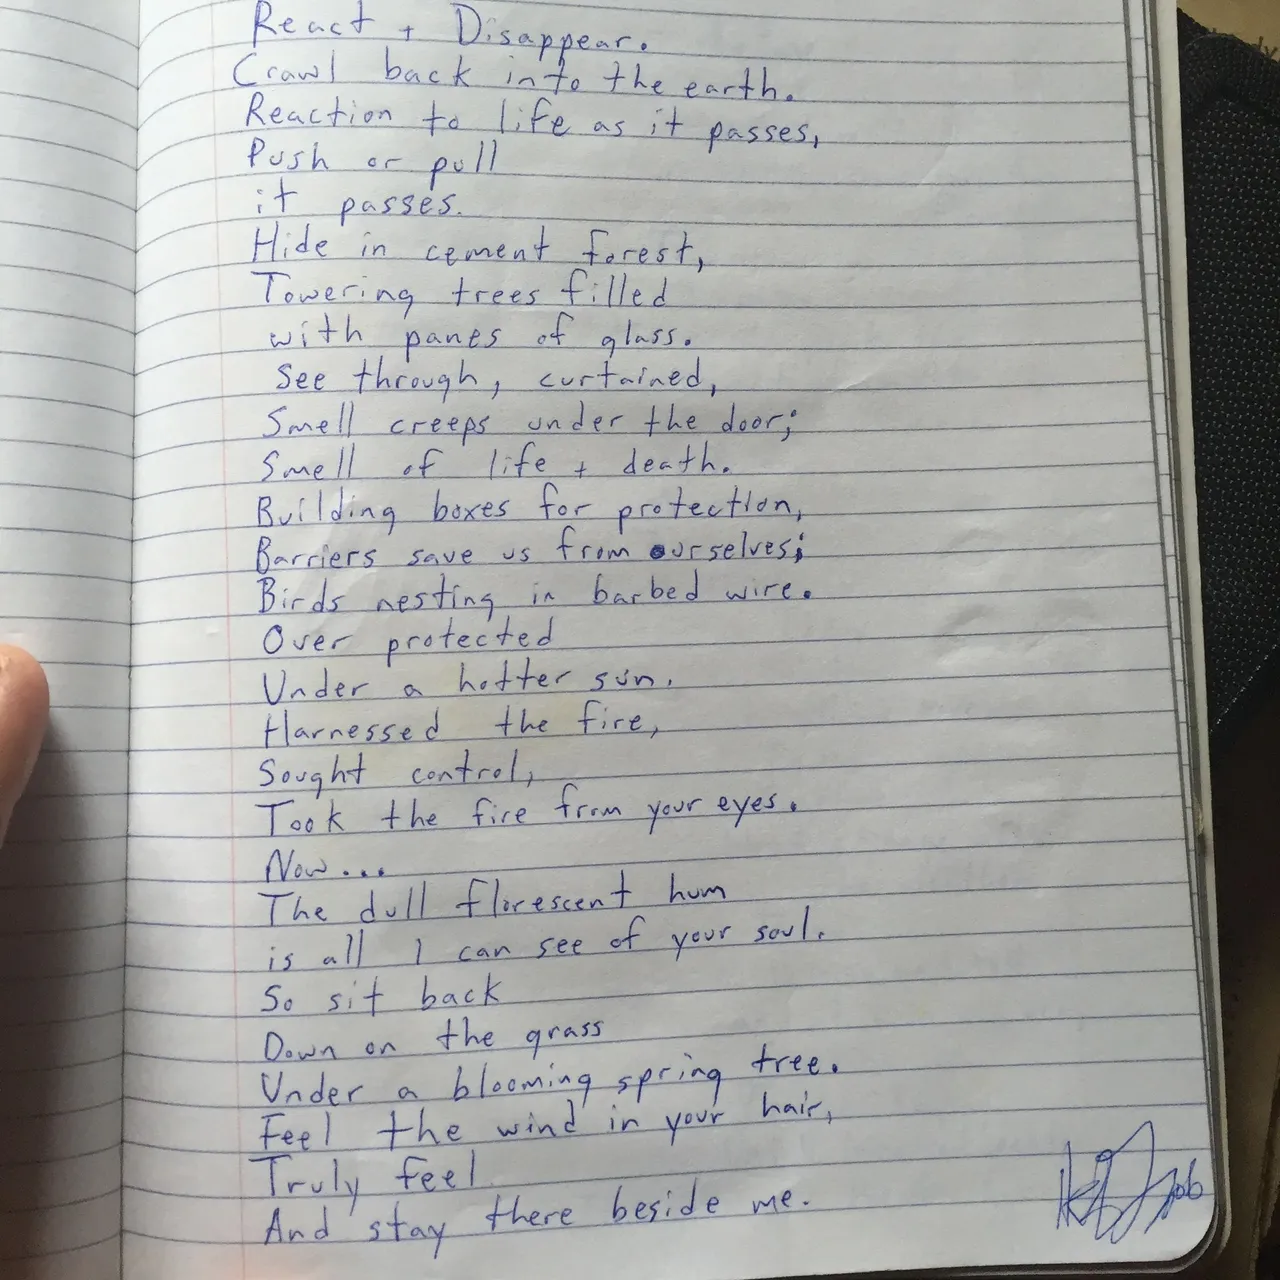 React + Disappear.
Crawl back into the earth.
Reaction to life as it passes,
Push or pull
it passes.
Hide in cement forest,
Towering trees filled
with panes of glass.
See through, curtained,
Smell creeps under the door;
Smell of life + death.
Building boxes for protection,
Barriers save us from ourselves;
Birds nesting in barbed wire.
Over protected
Under a hotter sun.
Harnessed the fire,
Sought control,
Took the fire from your eyes.
Now...
The dull florescent hum
is all I can see of your soul.
So sit back
Down on the grass
Under a blooming spring tree.
Feel the wind in your hair,
Truly feel
And stay there beside me.